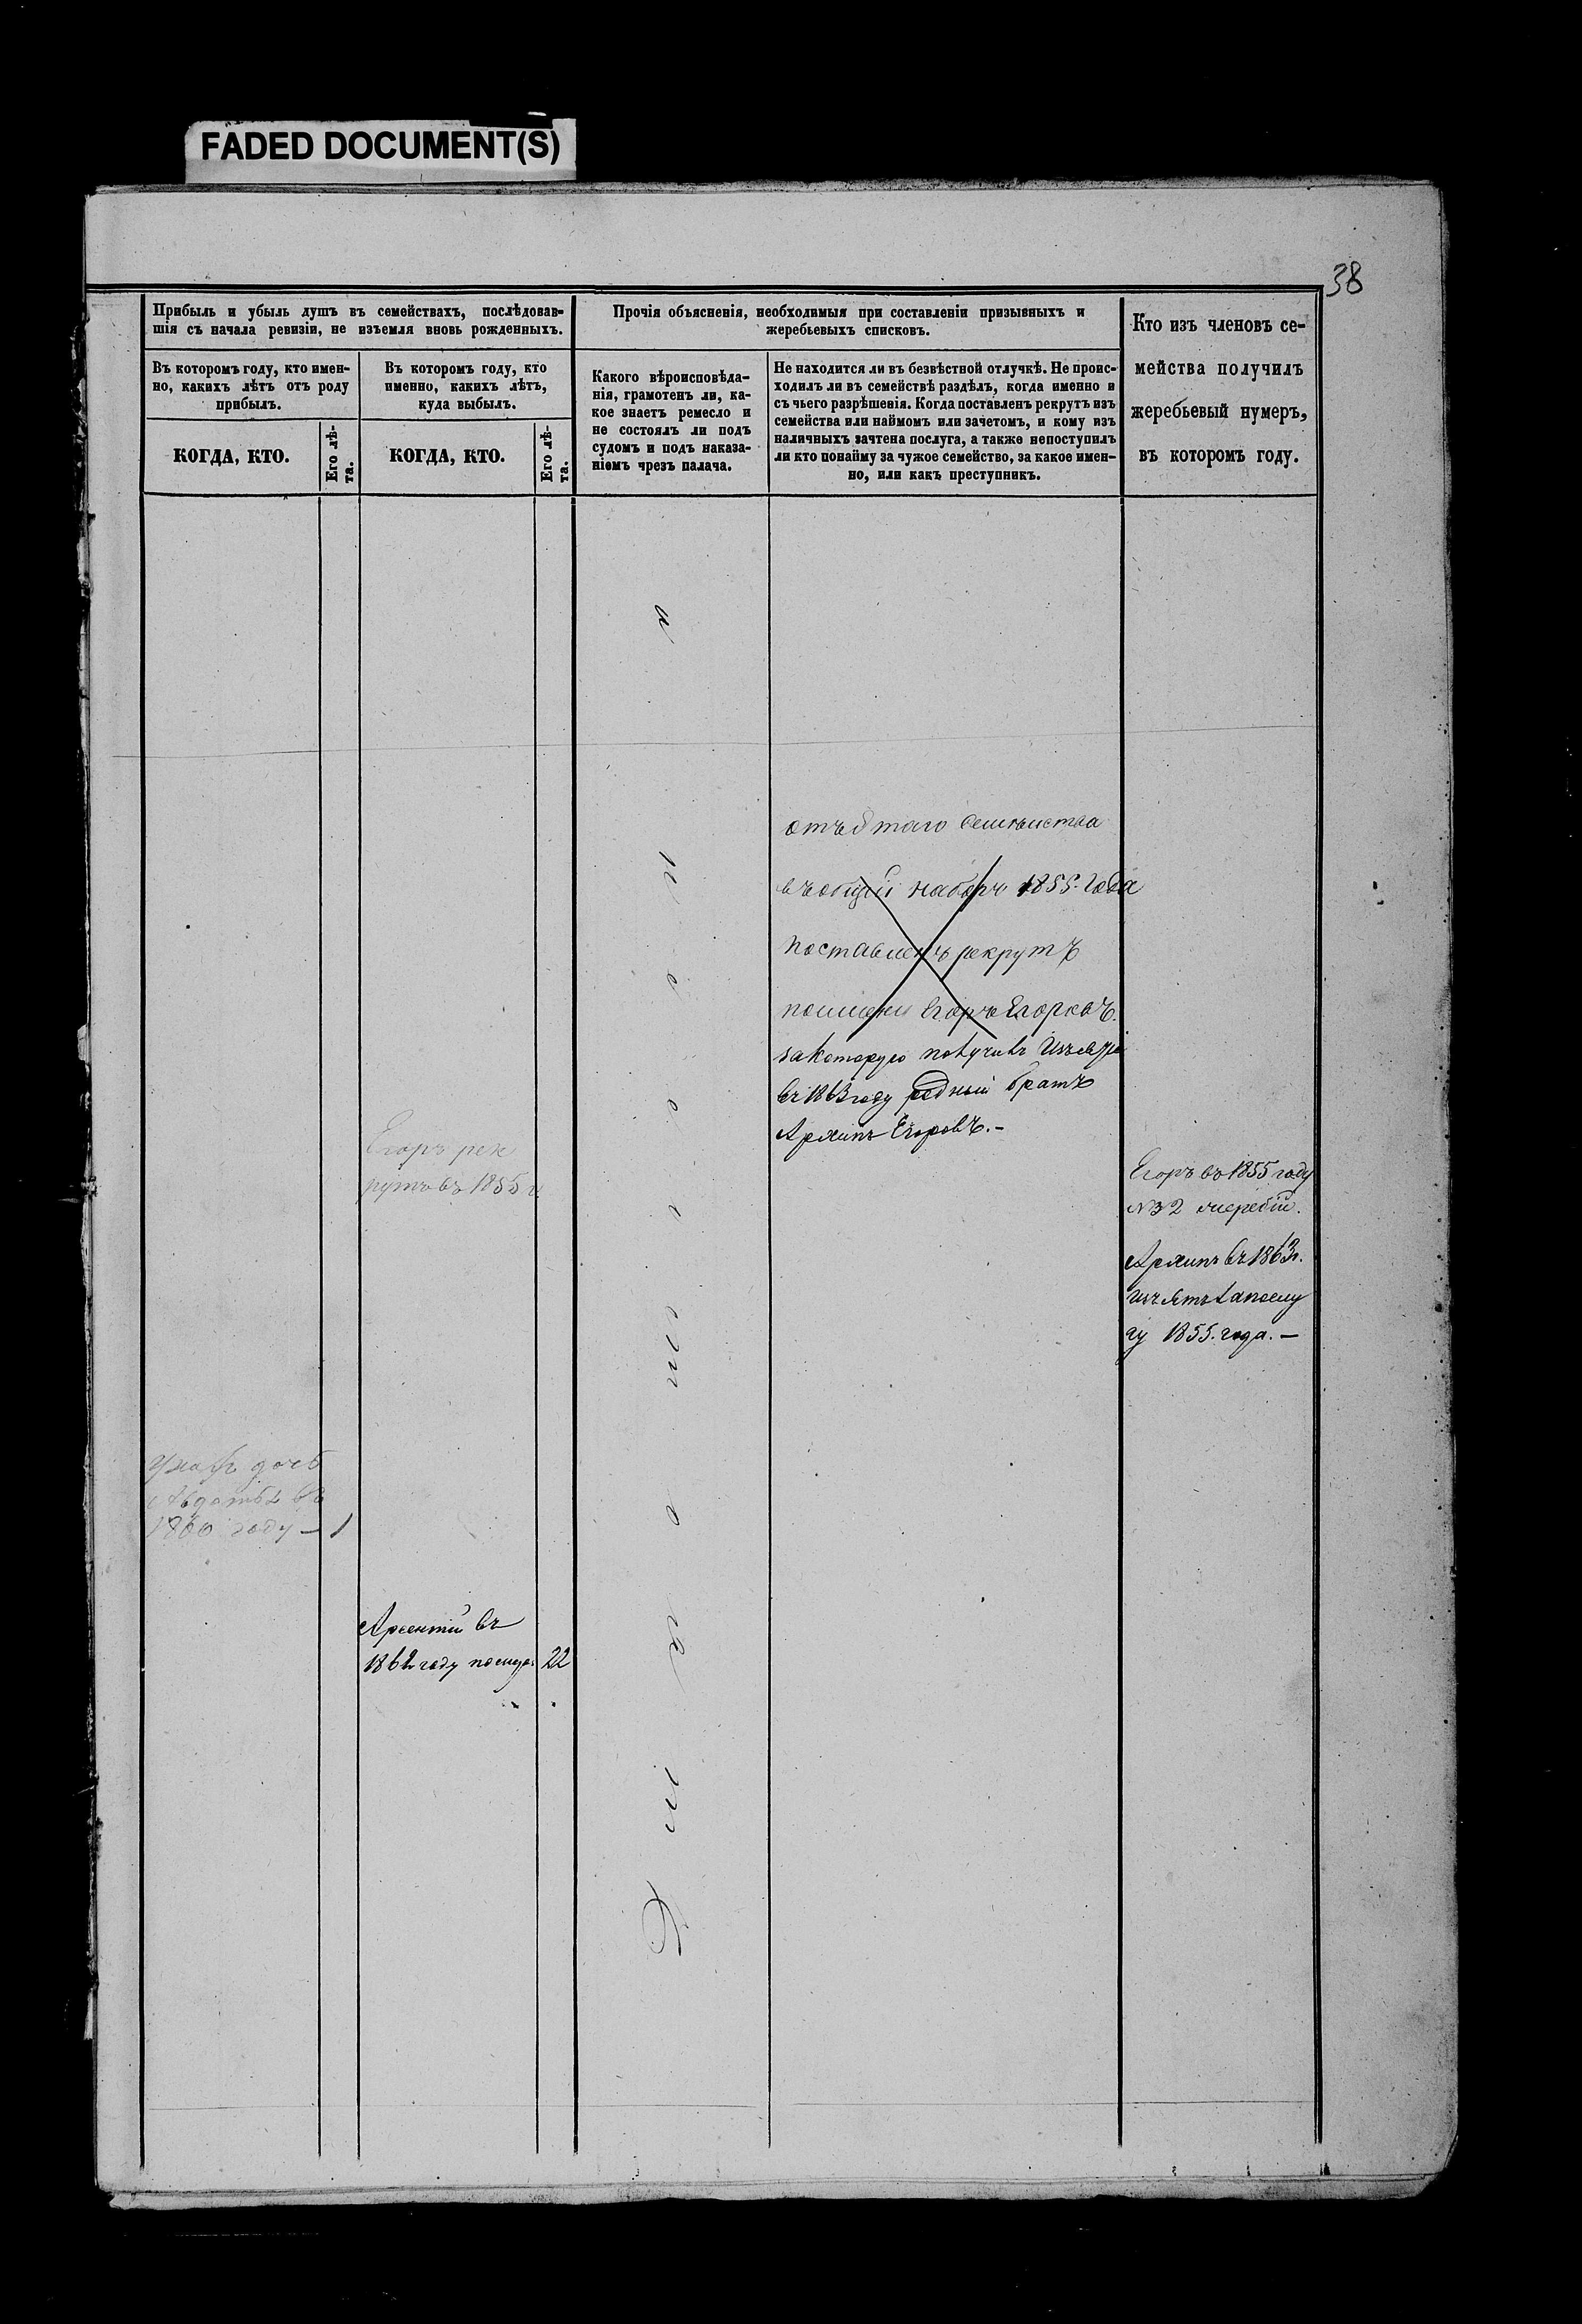 FADED DOCUMENT(S)
38
Прибыль и убыль душъ въ семействахъ, послѣдовав-
шія съ начала ревизіи, не изъемля вновь рожденныхъ.
Въ которомъ году, кто имен-
но, какихъ лѣтъ отъ роду
прибылъ.
КОГДА, КТО.
Его лѣ-
та.
Въ которомъ году, кто
именно, какихъ лѣтъ,
куда выбылъ.
КОГДА, КТО.
Его лѣ-
та.
Прочія объясненія, необходимыя при составленіи призывныхъ и
жеребьевыхъ списковъ.
Какого вѣроисповѣда-
нія, грамотенъ ли, ка-
кое знаетъ ремесло и
не состоялъ ли подъ
судомъ и подъ наказа-
ніемъ чрезъ палача.
Не находится ли въ безвѣстной отлучкѣ. Не проис-
ходилъ ли въ семействѣ раздѣлъ, когда именно и
съ чьего разрѣшенія. Когда поставленъ рекрутъ изъ
семейства или наймомъ или зачетомъ, и кому изъ
наличныхъ зачтена послуга, а также непоступилъ
ли кто понайму за чужое семейство, за какое имен-
но, или какъ преступникъ.
Кто изъ членовъ се-
мейства получилъ
жеребьевый нумеръ,
въ которомъ году.
отъ этаго семѣиства
въ общій наборъ 1855. года
поставленъ рекрутъ
поимени Егоръ Егоровъ.
за которую получивъ
въ 1863 году родный братъ
Архипъ Егоровъ.-
Егоръ рек
рутъ въ 1855 г
Егоръ въ 1855 году
№ 32
Архипъ въ 1863 г.
изъятъ
1855. года. —
дочь
въ
1860 году — 1
Арсентій въ
1862 году 22